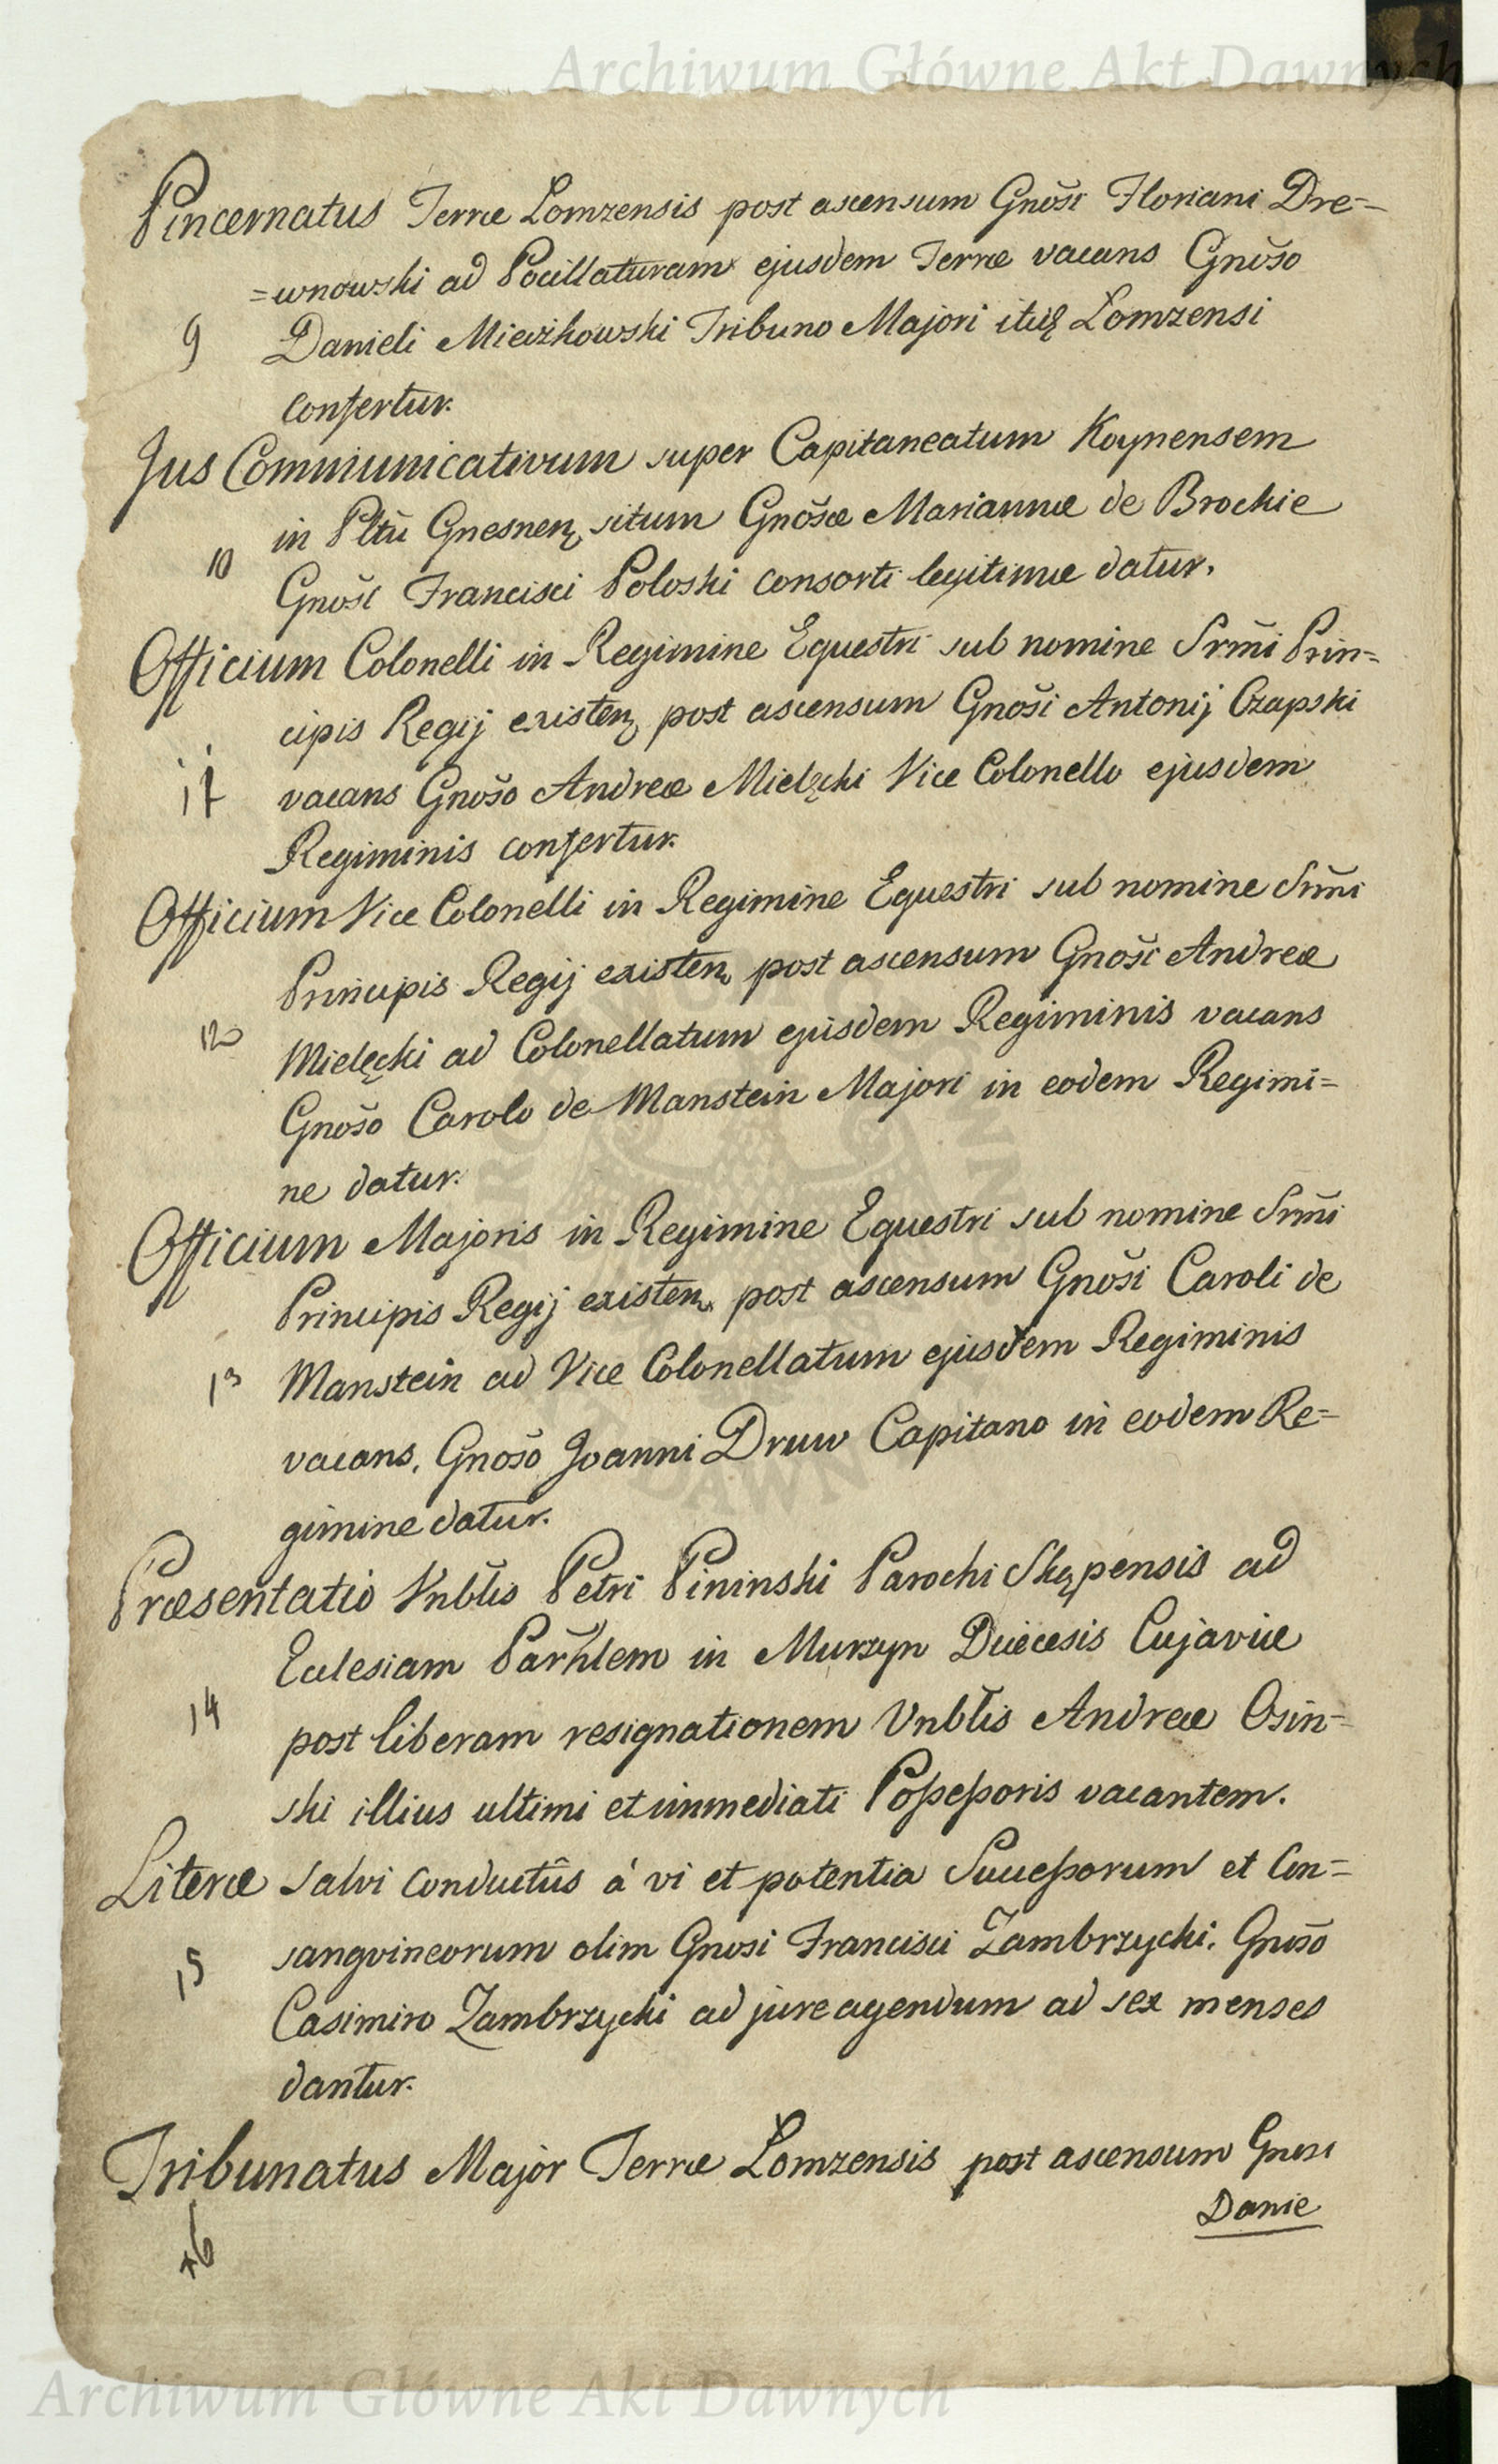 Archiwum Główne Akt Dawnych
Pincernatus Terræ Lomzensis post ascensum Gnosi Floriani Dre=
=wnowski ad Pocillaturam ejusdem Terræ vacans Gnoso
9 Danieli Mieczkowski Tribuno Majori itidę Lomzensi
confertur.
Jus Communicativum super Capitaneatum Koynensem
in Pltũ Gnesnenę situm Gnosæ Mariannæ de Brochie
10 Gnosi Francisci Poloski consorti legitimæ datur.
Officium Colonelli in Regimine Equestri sub nomine Srm̃i Prin=
cipis Regij existenę post ascensum Gnosi Antonij Czapski
11 vacans Gnoso Andreæ Mielęcki Vice Colonello ejusdem
Regiminis confertur.
Officium Vice Colonelli in Regimine Equestri sub nomine Srm̃i
Principis Regij existenę post ascensum Gnosi Andreæ
12 Mielęcki ad Colonellatum ejusdem Regiminis vacans
Gnoso Carolo de Manstein Majori in eodem Regimi=
ne datur.
Officium Majoris in Regimine Equestri sub nomine Srm̃i
Principis Regij existenę post ascensum Gnosi Caroli de
13 Manstein ad Vice Colonellatum ejusdem Regiminis
vacans, Gnoso Joanni Druw Capitano in eodem Re=
gimine datur.
Præsentatio Vnblis Petri Pininski Parochi Skępensis ad
Eclesiam Parhlem in Murzyn Diecesis Cujaviæ
14 post liberam resignationem Vnblis Andreæ Osin=
ski illius ultimi et immediati Poßeßoris vacantem.
Literæ salvi conductûs à vi et potentia Succeßorum et Con=
sangvineorum olim Gnosi Francisci Zambrzycki, Gnoso
15 Casimiro Zambrzycki ad jure agendum ad sex menses
dantur.
Tribunatus Major Terræ Lomzensis post ascensum Gnosi
16 Danie
Archiwum Główne Akt Dawnych